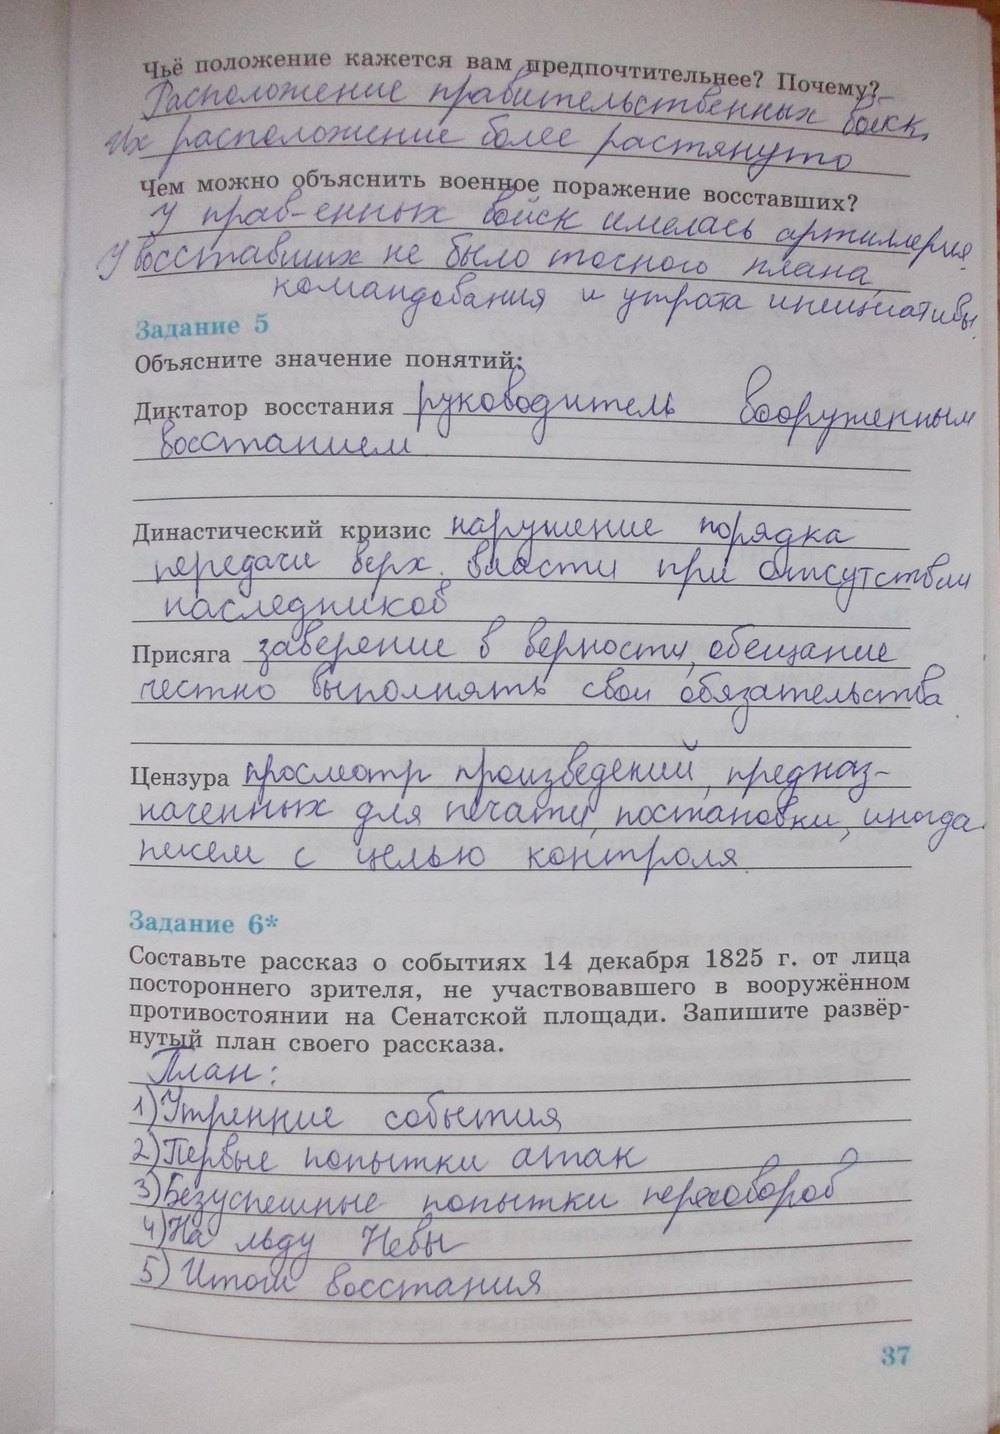 Чьё положение кажется вам предпочтительнее? Почему?
Расположение правительственных войск.
Их расположение более растянуто
Чем можно объяснить военное поражение восставших?
У прав-енных войск имелась артиллерия
У восставших не было тосного плана,
командования и утрата инициативы
Задание 5
Объясните значение понятий:
Диктатор восстания руководитель вооруженным
восстанием
Династический кризис нарушение порядка
передачи верх. власти при отсутствии
наследников
Присяга заверение в верности, обещание
честно выполнять свои обязательства
Цензура просмотр произведений, предназ-
наченных для печати, постановки, иногда
писем с целью контроля
Задание 6*
Составьте рассказ о событиях 14 декабря 1825 г. от лица
постороннего зрителя, не участвовавшего в вооружённом
противостоянии на Сенатской площади. Запишите развёр-
нутый план своего рассказа.
План:
1) Утренние события
2) Первые попытки атак
3) Безуспешные попытки переговоров
4) На льду Невы
5) Итоги восстания
37